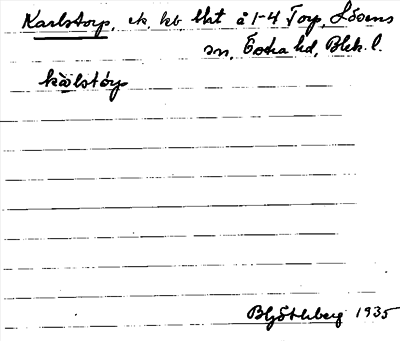 Karlstorp, ek, kb lht å 1-4 Torp, Lösens
sn, Östra hd, Blek. l.
kàlstórp
B Götlberg 1935